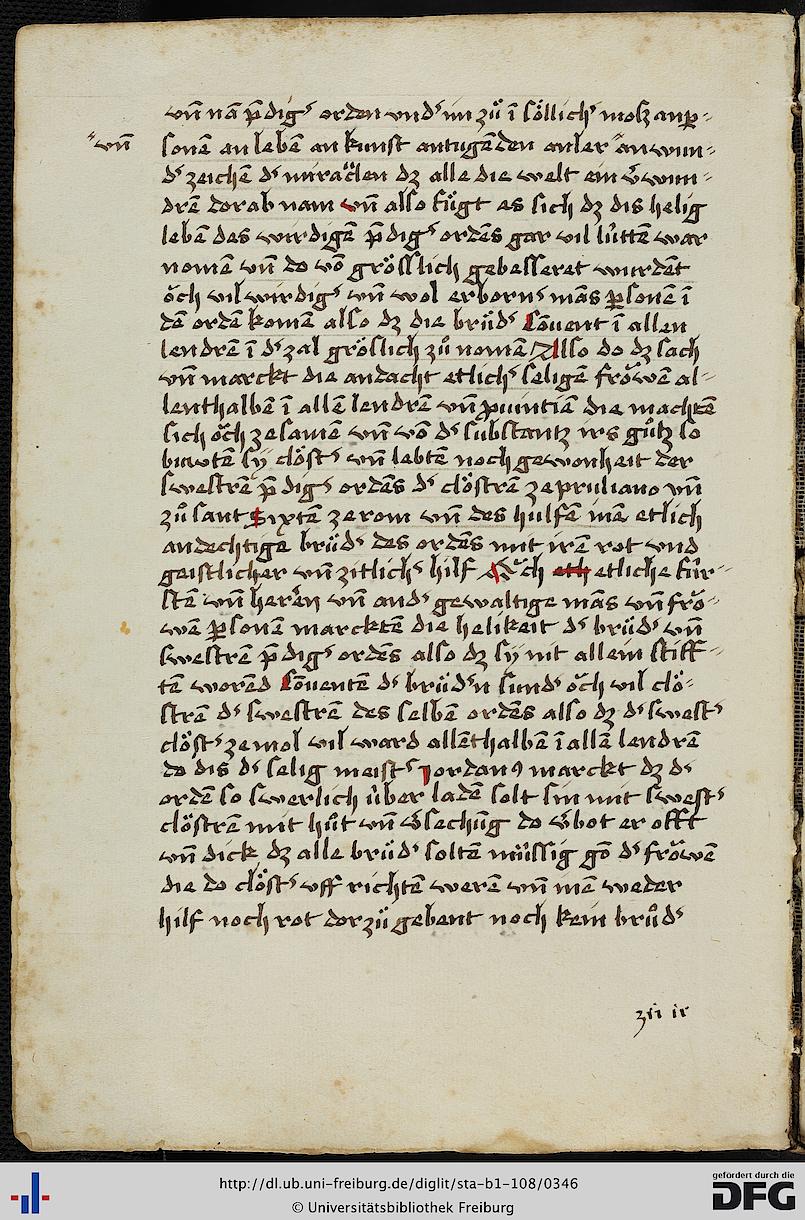 vn̄ nā p̄digˢ orden vndˢ im zů ī söllichˢ mosz an ꝑ⸗
vn̄
sonē an lebē an kunst an tugendē an ler an wun⸗
dˢ zeichē dˢ miraclen dz alle die welt ein v̄wun⸗
drē dorab nam vn̄ also fůgt es sich dz dis helig
lebē des wirdigē p̄digˢ ordēs gar vil lüttē war
nomē vn̄ do vō grösslich gebesseret wurdēt
öch vil wirdigˢ vn̄ wol erbornˢ mās ꝑsonē ī
dē ordē komē also dz die brüdˢ Cōuent ī allen
lendrē ī dˢ zal gröslich zů nomē Also do dz sach
vn̄ marckt die andacht etlichˢ seligē fröwē al⸗
lenthalbē ī allē lendrē vn̄ ꝓuintiē die machtē
sich öch zesamē vn̄ vō dˢ substantz irs gůtz so
buwtē sy clöstˢ vn̄ lebtē noch gewonheit der
swestrē p̄digˢ ordēs dˢ clöstrē ze pruliano vn̄
zů sant Sixtē ze rom vn̄ des hulfē inē etlich
andechtige brüdˢ des ordēs mit irē rot vnd
geistlicher vn̄ zitlichˢ hilf Öch eth etliche für⸗
stē vn̄ herēn vn̄ andˢ gewaltige mās vn̄ frö⸗
wē ꝑsonē marcktē die helikeit dˢ brüdˢ vn̄
swestrē p̄digˢ ordēs also dz sy nit allein stiff⸗
tē worend Cōuentē dˢ brüdˢn sundˢ öch vil clö⸗
strē dˢ swestrē des selben ordēs also dz dˢ swestˢ
clöstˢ ze mol vil ward allēthalbē ī allē lendrē
do dis dˢ selig meistˢ Jordanꝰ marckt dz dˢ
ordē so swerlich über ladē solt sin mit swestˢ
clöstrē mit hůt vn̄ v̄sechūg do v̄bot er offt
vn̄ dick dz alle brüdˢ soltē müssig gō dˢ fröwē
die do clöstˢ vff richtē werē vn̄ inē weder
hilf noch rot dorzů gebent noch kein brůdˢ
http://dl.ub.uni-freiburg.de/diglit/sta-b1-108/0346
© Universitätsbibliothek Freiburg
gefördert durch die
DFG